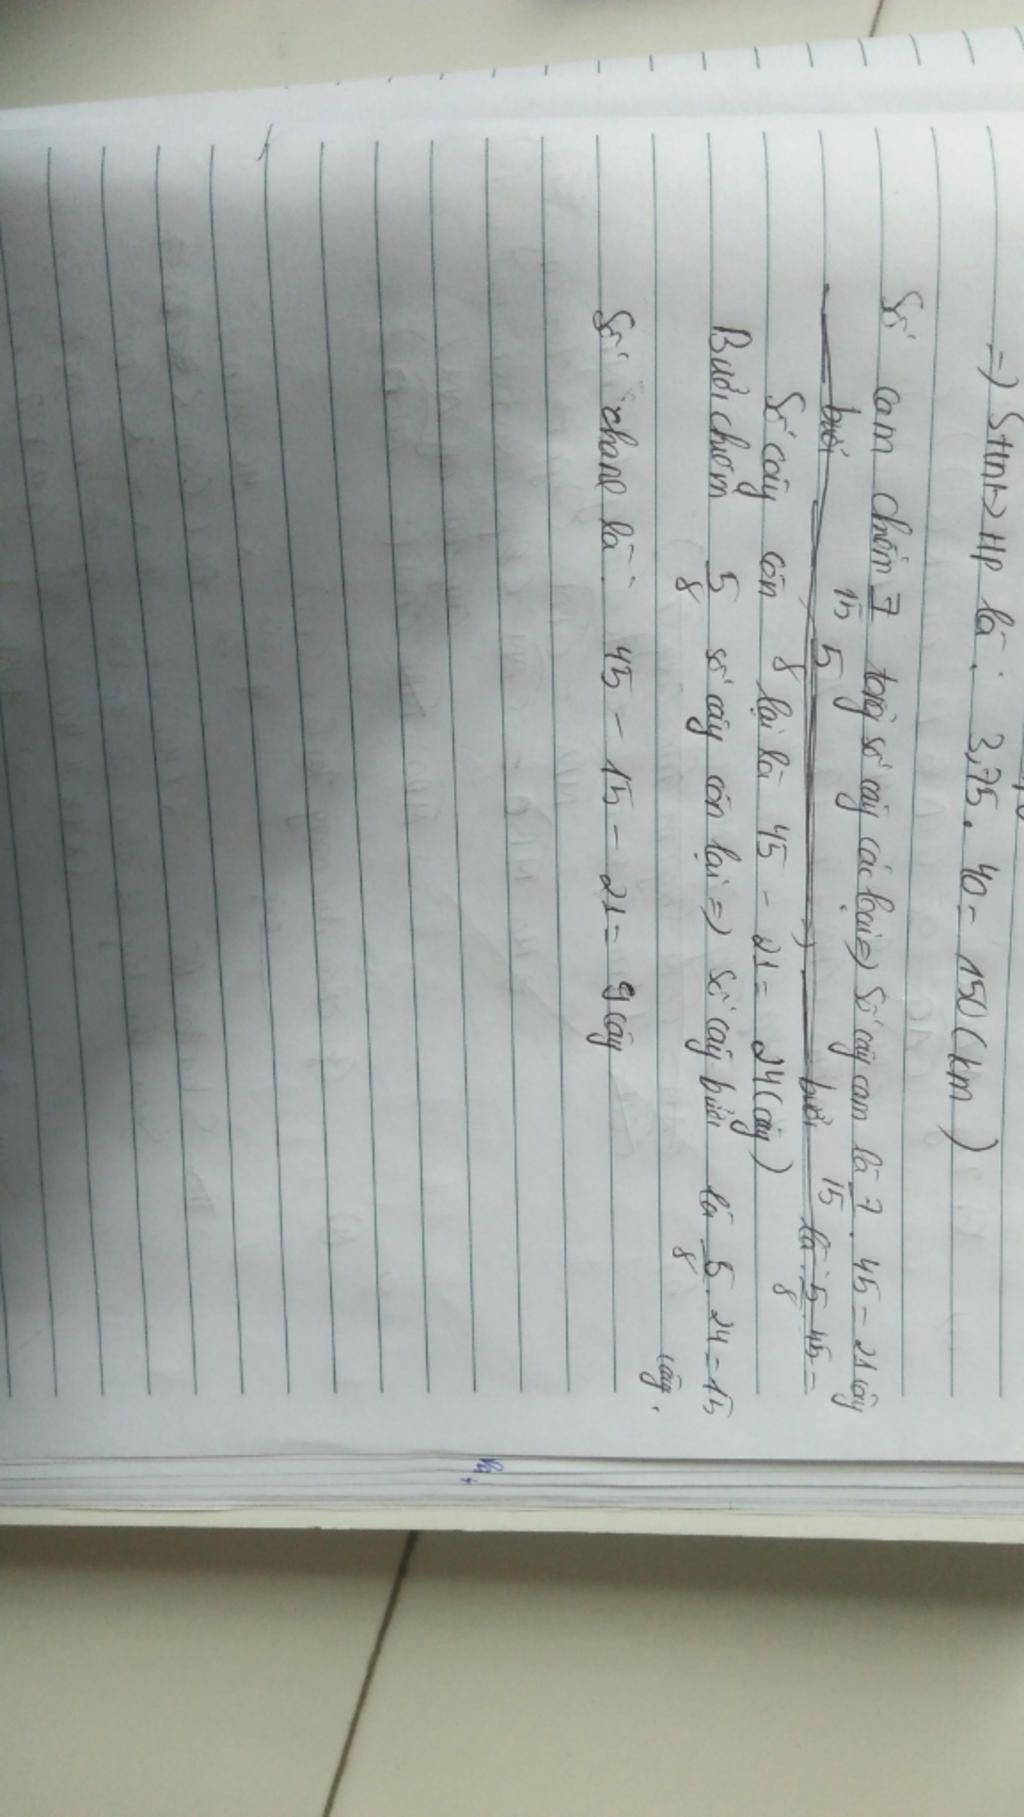 =) SHN→HP là: 3,75. 40 = 150 (km)
Số cam chiếm 7/15 tổng số cây các loại =) Số cây cam là 7/15 . 45 = 21 cây
bưởi 5/8 =) bưởi là: 5/8 . 45 =
Số cây còn lại là 45 - 21 = 24 (cây)
Bưởi chiếm 5/8 số cây còn lại =) số cây bưởi là 5/8 . 24 = 15
cây.
Số chanh là: 45 - 15 - 21 = 9 cây